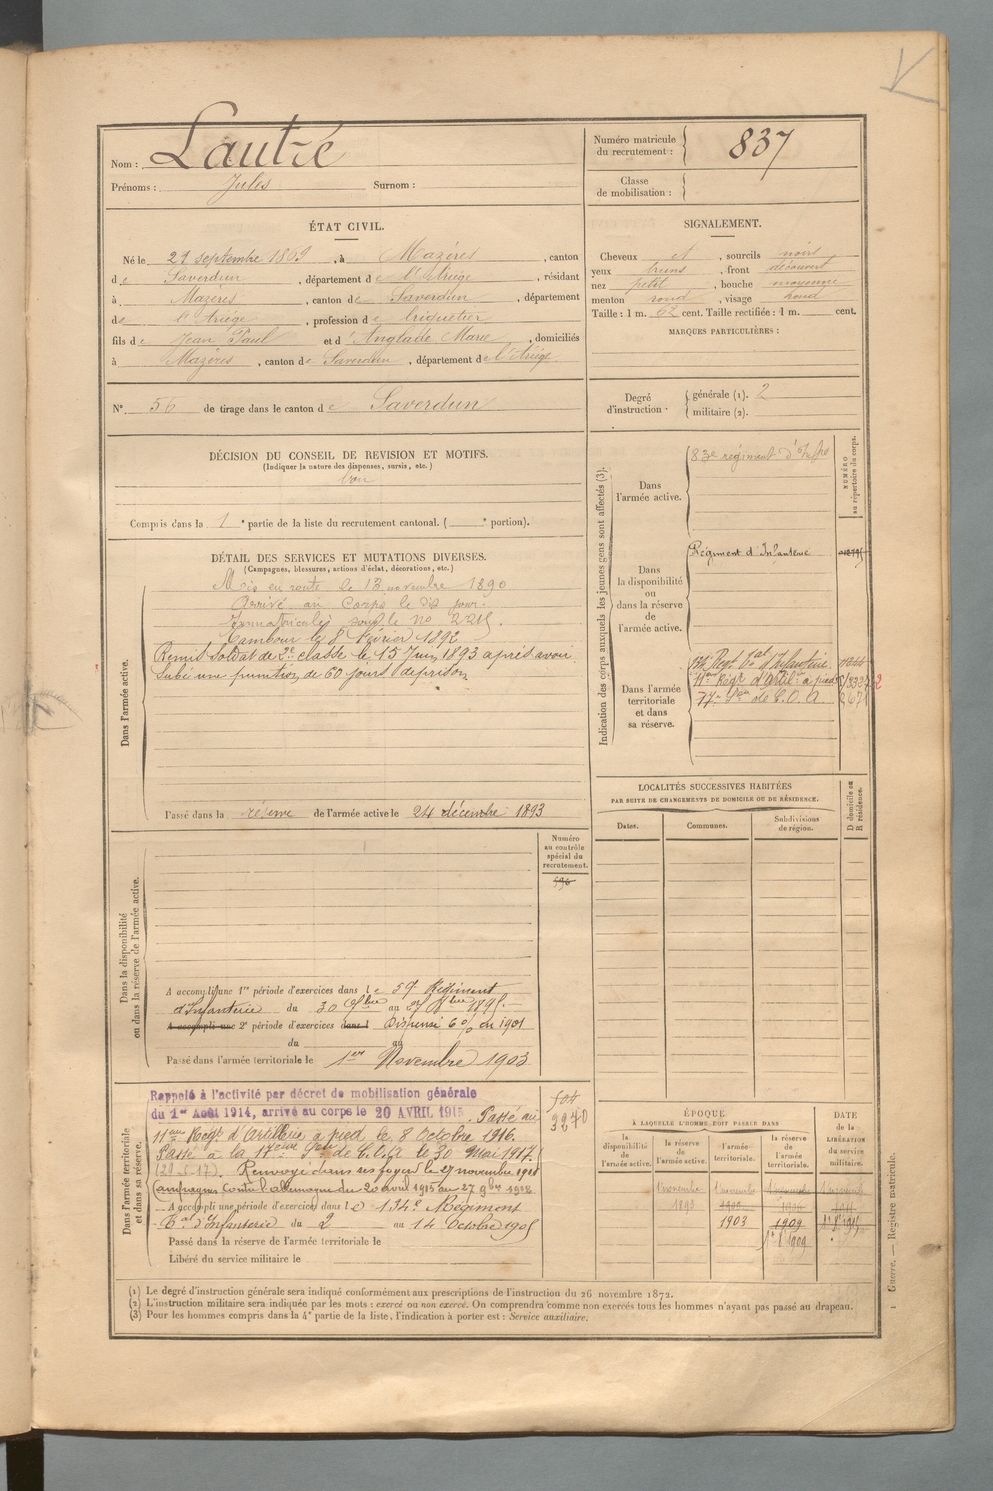 Nom : Lautré
Prénoms : Jules Surnom :
Numéro matricule du recrutement : 837
Classe de mobilisation :
ÉTAT CIVIL.
Né le 21 septembre 1869, à Mazères, canton
de Saverdun, département de l'Ariège, résidant
à Mazères, canton de Saverdun, département
de l'Ariège, profession de briquetier
fils de Jean Paul et d'Anglade Marie, domiciliés
à Mazères, canton de Saverdun, département de l'Ariège
N° 56 de tirage dans le canton de Saverdun
SIGNALEMENT.
Cheveux et, sourcils noirs
yeux bruns, front découvert
nez petit, bouche moyenne
menton rond, visage rond
Taille : 1 m. 62 cent. Taille rectifiée : 1 m. cent.
MARQUES PARTICULIÈRES :
Degré d'instruction. générale (1). 2
militaire (2).
DÉCISION DU CONSEIL DE REVISION ET MOTIFS.
(Indiquer la nature des dispenses, sursis, etc.)
bon
Compris dans la 1e partie de la liste du recrutement cantonal. ( e portion).
DÉTAIL DES SERVICES ET MUTATIONS DIVERSES.
(Campagnes, blessures, actions d'éclat, décorations, etc.)
Dans l'armée active.
Mis en route le 13 novembre 1890
Arrivé au Corps le dit jour.
Immatriculé sous le no 2215.
Tambour le 8 Février 1892
Remis Soldat de 2e classe le 15 Juin 1893 après avoir
subi une punition de 60 jours de prison
Passé dans la réserve de l'armée active le 24 décembre 1893
Indication des corps auxquels les jeunes gens sont affectés (3).
NUMÉRO au répertoire du corps.
Dans l'armée active.
83e régiment d'Inf
Dans la disponibilité ou dans la réserve de l'armée active.
Régiment d'Infanterie
Dans l'armée territoriale et dans sa réserve.
134 Regt tal d'Infanterie
11eme Régt d'Artilie à pied
17e son de C.O.A
LOCALITÉS SUCCESSIVES HABITÉES
PAR SUITE DE CHANGEMENTS DE DOMICILE OU DE RÉSIDENCE.
Dates. Communes. Subdivisions de région. D domicile ou R résidence.
Dans la disponibilité ou dans la réserve de l'armée active.
Numéro au contrôle spécial du recrutement.
A accompli une 1re période d'exercices dans le 59 Régiment
d'Infanterie du 30 au 1895.
A accompli une 2e période d'exercices dans l Dispensé 6% en 1901
du au
Passé dans l'armée territoriale le 1er Novembre 1903
Dans l'armée territoriale et dans sa réserve.
Rappelé à l'activité par décret de mobilisation générale
du 1er Août 1914, arrivé au corps le 20 AVRIL 1915. Passé au
11eme Regt d'Artillerie à pied le 8 Octobre 1916.
Passé à la 17eme Son de C.O.A le 30 Mai 1917.
Renvoyé dans ses foyers le 27 novembre 1918
Campagnes Contre l'allemagne du 20 avril 1915 au 27 9bre 1918
A accompli une période d'exercices dans le 134e Régiment
tal d'Infanterie du 2 au 14 Octobre 1905
Passé dans la réserve de l'armée territoriale le
Libéré du service militaire le
504
3240
ÉPOQUE
À LAQUELLE L'HOMME DOIT PASSER DANS
la disponibilité de l'armée active. la réserve de l'armée active. l'armée territoriale. la réserve de l'armée territoriale.
DATE de la LIBÉRATION du service militaire.
1 novembre 1893
1 novembre 1903
1909
1er 8 1909
(1) Le degré d'instruction générale sera indiqué conformément aux prescriptions de l'instruction du 26 novembre 1872.
(2) L'instruction militaire sera indiquée par les mots : exercé ou non exercé. On comprendra comme non exercés tous les hommes n'ayant pas passé au drapeau.
(3) Pour les hommes compris dans la 4e partie de la liste, l'indication à porter est : Service auxiliaire.
Guerre. — Registre matricule.